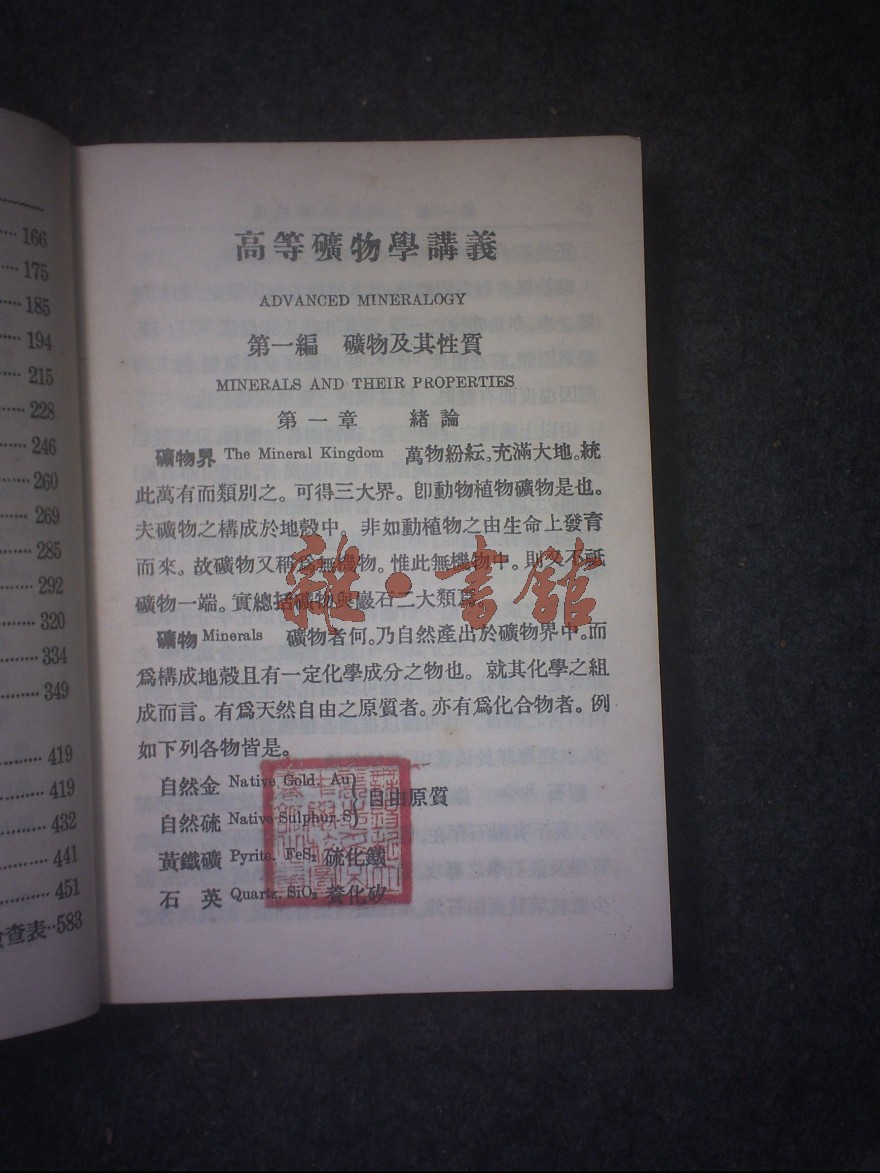 166
175
185
194
215
228
246
260
269
285
292
320
334
349
419
419
432
441
451
查表··583
高等礦物學講義
ADVANCED MINERALOGY
第一編 礦物及其性質
MINERALS AND THEIR PROPERTIES
第一章 緒論
礦物界 The Mineral Kingdom 萬物紛紜。充滿大地。統
此萬有而類別之。可得三大界。卽動物植物礦物是也。
夫礦物之構成於地殼中。非如動植物之由生命上發育
而來。故礦物又稱爲無機物。惟此無機物中。則又不祗
礦物一端。實總括礦物與巖石二大類焉。
礦物 Minerals 礦物者何。乃自然產出於礦物界中。而
爲構成地殼且有一定化學成分之物也。就其化學之組
成而言。有爲天然自由之原質者。亦有爲化合物者。例
如下列各物皆是。
自然金 Native Gold, Au
自然硫 Native Sulphur, S
(自由原質
黃鐵礦 Pyrite, FeS₂ 硫化鐵
石英 Quartz, SiO₂ 養化矽
雜·書館